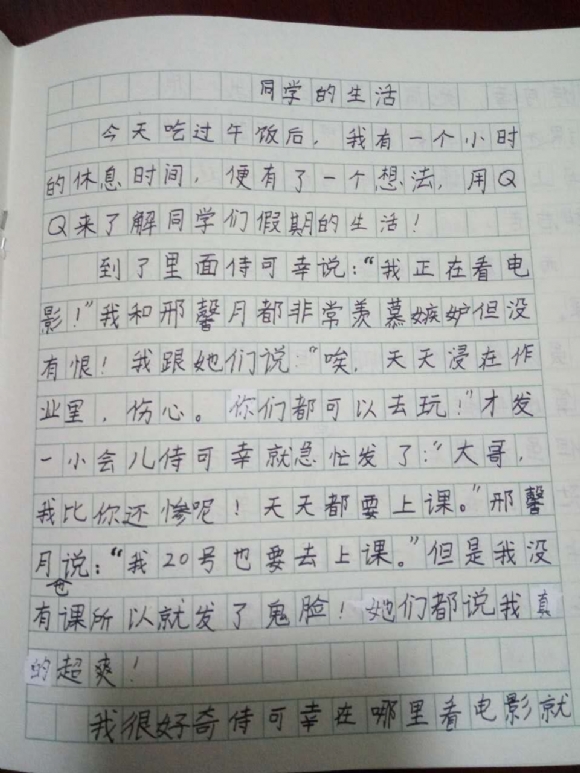 同学的生活
今天吃过午饭后，我有一个小时
的休息时间，便有了一个想法，用Q
Q来了解同学们假期的生活！
到了里面侍可幸说：“我正在看电
影！”我和邢馨月都非常羡慕嫉妒但没
有恨！我跟她们说：“唉，天天浸在作
业里，伤心。你们都可以去玩！”才发
一小会儿侍可幸就急忙发了：“大哥，
我比你还惨呢！天天都要上课。”邢馨
月也说：“我20号也要去上课。”但是我没
有课所以就发了鬼脸！她们都说我真
的超爽！
我很好奇侍可幸在哪里看电影就